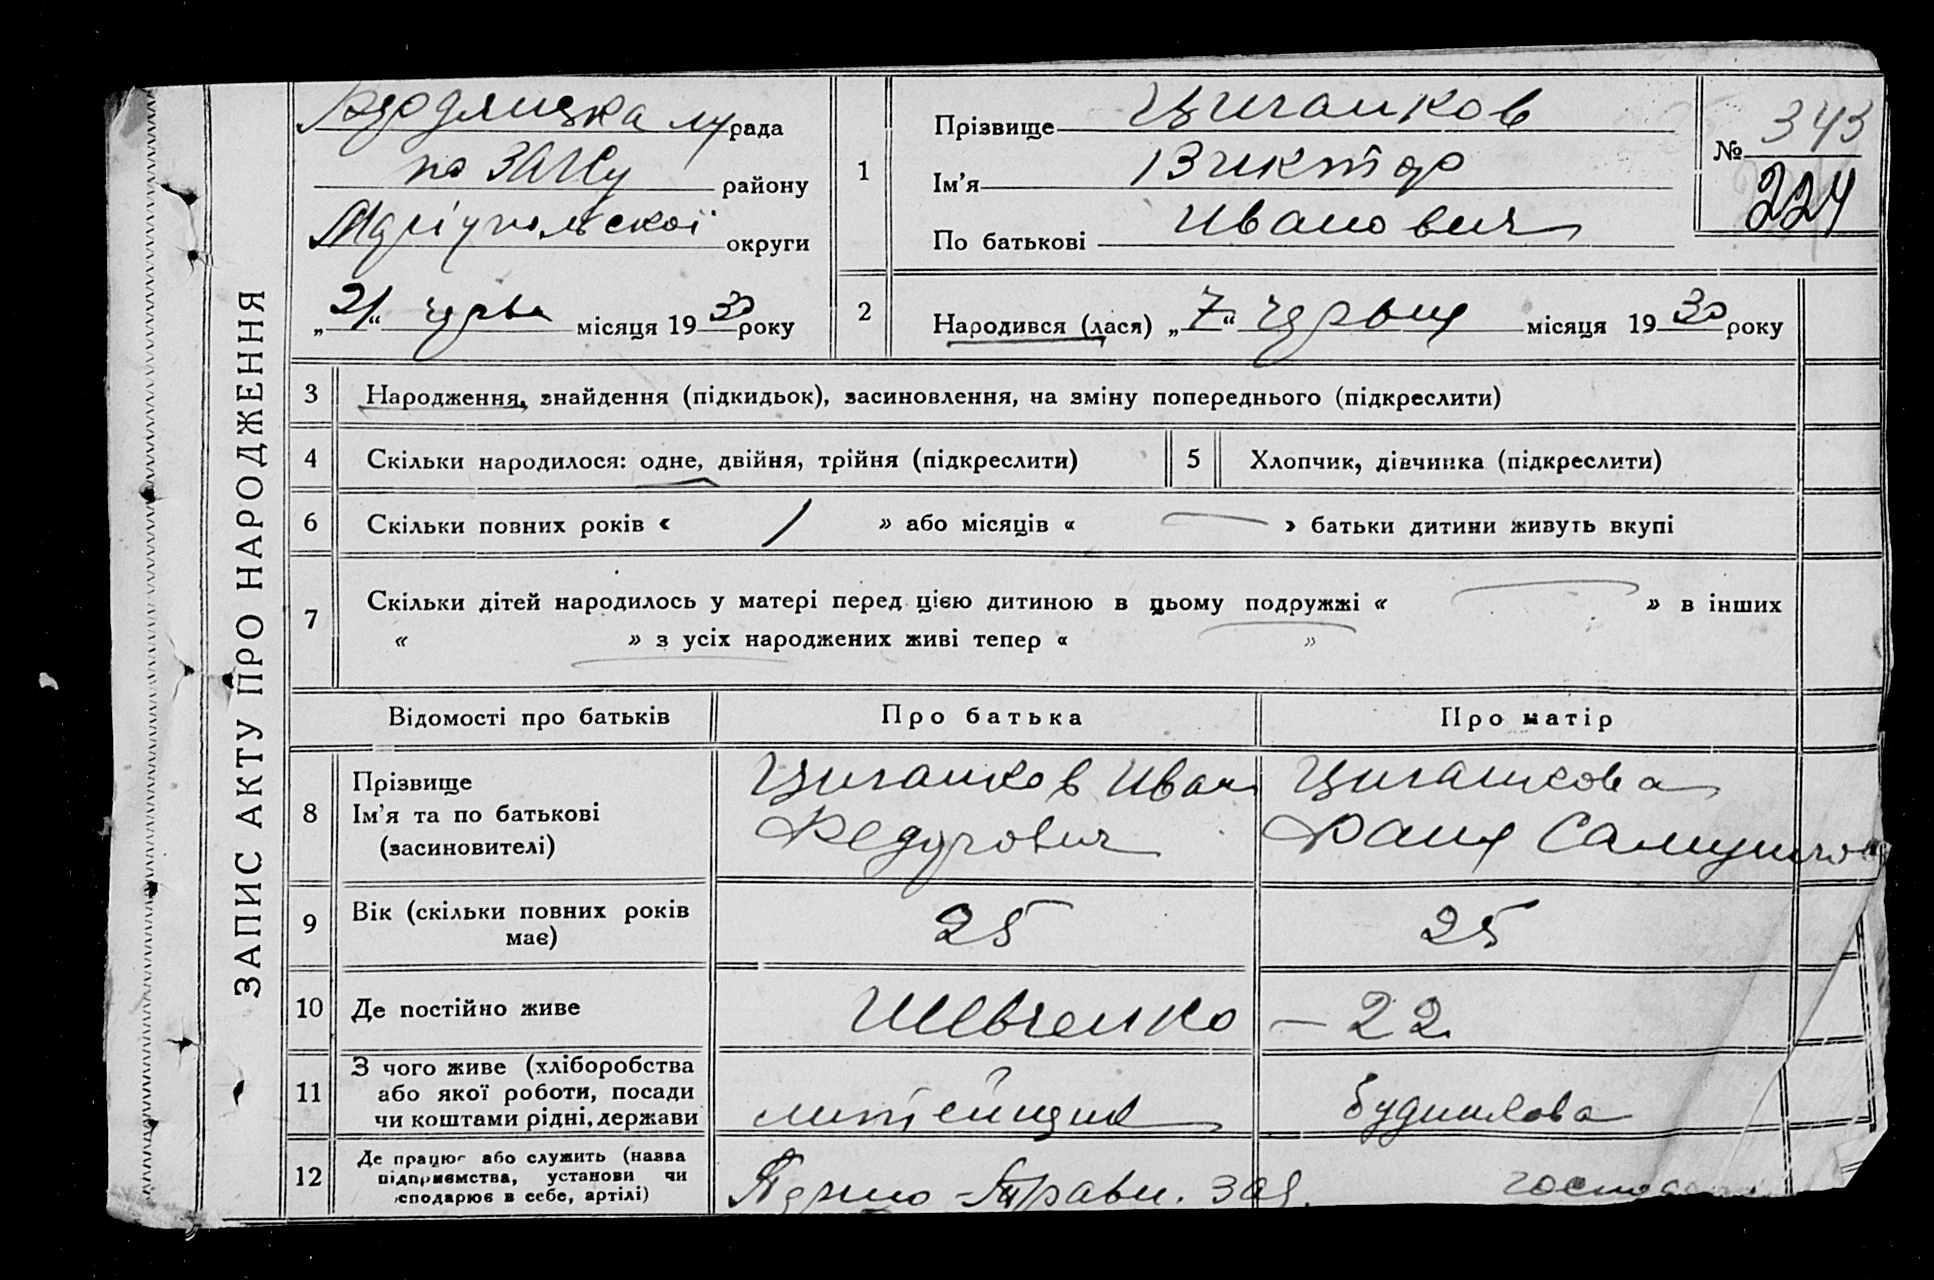 ЗАПИС АКТУ ПРО НАРОДЖЕННЯ
Бердянська м/рада
по ЗАГСу району
Маріупольської округи
„21“ червн місяця 1930 року
1
Прізвище Циганков
Ім'я Виктор
По батькові Иванович
№ 343
224
2
Народився (лася) „7“ червня місяця 1930 року
3 Народження, знайдення (підкидьок), засиновлення, на зміну попереднього (підкреслити)
4 Скільки народилося: одне, двійня, трійня (підкреслити)
5 Хлопчик, дівчинка (підкреслити)
6 Скільки повних років « 1 » або місяців « — » батьки дитини живуть вкупі
7 Скільки дітей народилось у матері перед цією дитиною в цьому подружжі « — » в інших
« — » з усіх народжених живі тепер « — »
Відомості про батьків Про батька Про матір
8 Прізвище
Ім'я та по батькові
(засиновителі)
Циганков Иван
Федорович
Циганкова
9 Вік (скільки повних років
має)
25 25
10 Де постійно живе Шевченко — 22
11 З чого живе (хліборобства
або якої роботи, посади
чи коштами рідні, держави
литейщик
12 Де працює або служить (назва
підприємства, установи чи
господарює в себе, артілі)
Перто-Трав. зав.